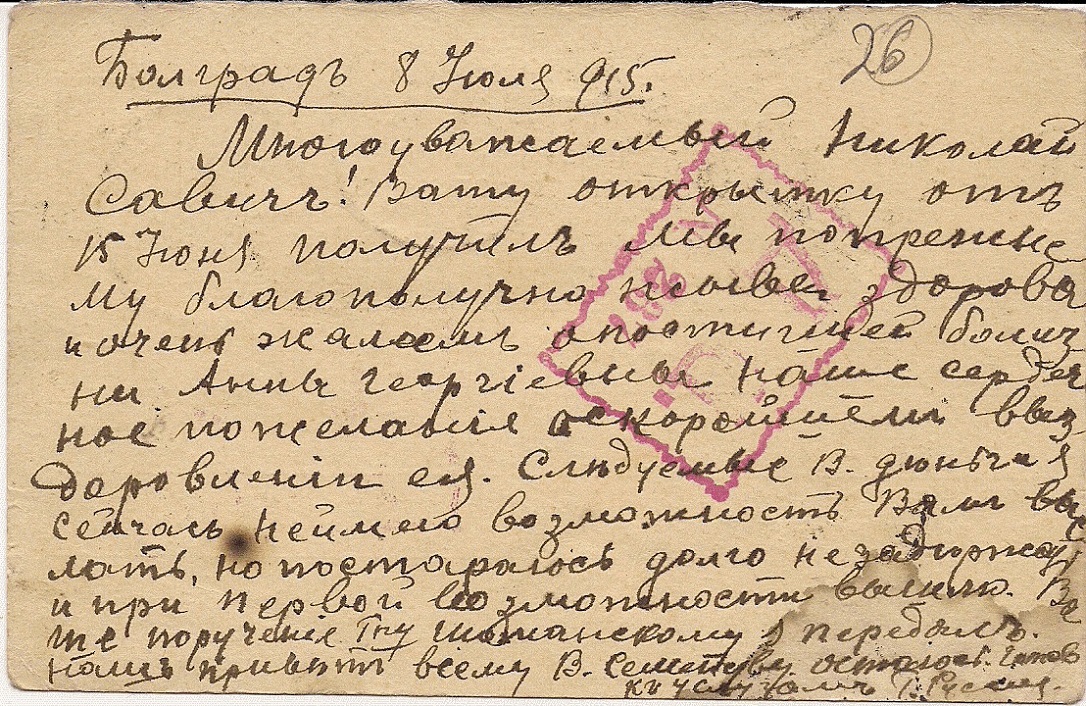 26
Болградъ 8 Июля 915.
Многоуважаемый Николай
Савичъ! Вашу открытку отъ
15 Июня получилъ Мы попрежне
му благополучно живы здоровы
и очень жалеемъ опостигшей болиз
ни Анны Георгіевны наше сердеч
ное пожеланія оскорейшемъ выз
доровленіи ея. Следуемые В. деньги я
сейчасъ неимею возможность Вамъ выс
лать, но постараюсь долго незадержать
и при первой возможности вышлю. Ва
ше порученіе Гну Шиманскому я передалъ.
нашъ приветъ всему В. Семейству остаюсь готов
къ услугамъ